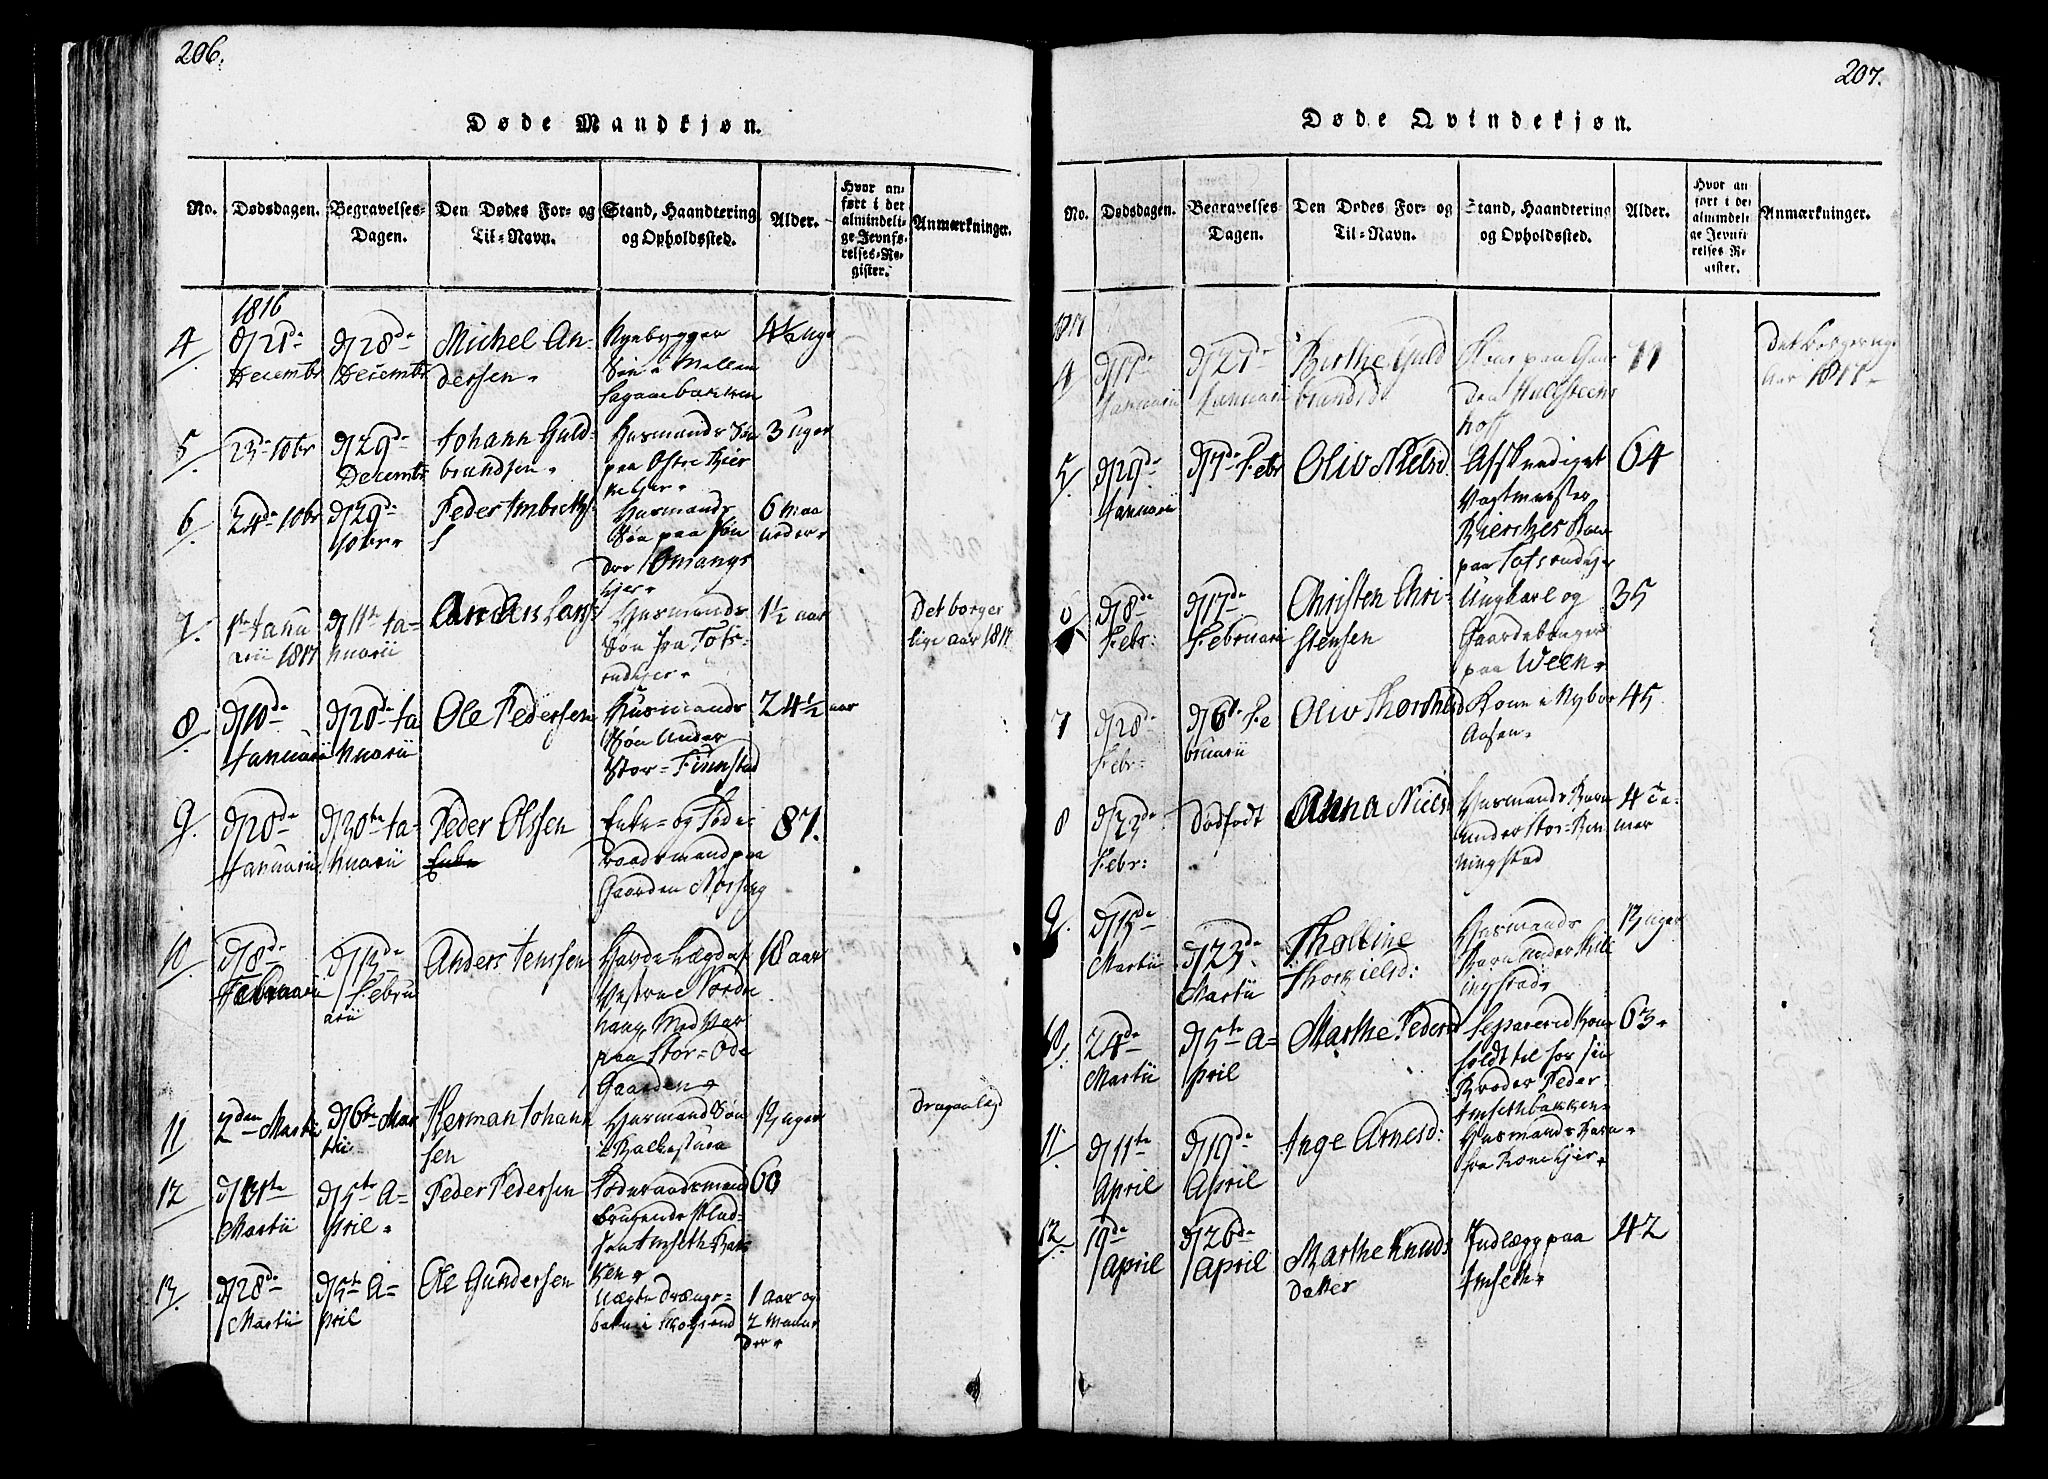 206.
Døde Mandkjøn.
No.
Dødsdagen.
Begravelses-
Dagen.
Den Dødes For- og
Til-Navn.
Stand, Haandtering
og Opholdssted.
Alder.
Hvor an-
ført i det
almindeli-
ge Jevnfø-
relses-Re-
gister.
Anmærkninger.
1816
4
d 21de
Decembr
d 28de
Decembr
Michel An-
dersen.
Nyebygger
Søn i Mellem
4½ uge
5.
23de 10br
d 29de
Decembr
Johann Guld-
brandsen.
Husmands Søn
paa Østre
3 uger
6
24de 10br
d 29de
10br.
Peder
Husmands
Søn paa Søn
dre
6 maa
neder.
7.
1te Janu
arii 1817
d 11te Ja-
nuarii
Anders Lars
Husmands
Søn fra Tots-
1½ aar
Det borger
lige aar 1817
8
d 10de
Januarii
d 20de Ja
nuarii
Ole Pedersen
Husmands
Søn under
Stor-Finnstad
24½ aar
9.
d 20de
Januarii
d 30te Ja-
nuarii
Peder Olssen
Enke
Enke- og Føde-
raadsmand paa
Gaarden
87.
10
d 8de
Februarii
d 13de
Febru
arii
Anders Jenssen
Vestre Nordre
haug
paa Stor-Ode
Gaarden.
18 aar
11
2den Martii
d 6te Mar
tii
Herman Johann
sen
Husmand Søn
13 uger
12
Martii
d 5te A-
pril.
Peder Pedersen
Føderaadsmand
60
13.
d 28de
Martii
d 5te A-
pril
Ole Gundersen
Uægte Drænge-
barn i
1 Aar og
2 Maane
der.
207.
Døde Qvindekjøn.
No.
Dødsdagen.
Begravelses-
Dagen.
Den Dødes For- og
Til-Navn.
Stand, Haandtering
og Opholdssted.
Alder.
Hvor an
ført i de
almindeli
ge Jevnfø
relses Re
gister.
Anmærkninger.
1817
4
d 17de
Januarii
d 27de
Januarii
Berthe Guld
brandsd
paa Gaar
den
hoff
77
Det borgerlige
Aar 1817.
5
d 29de
Januarii
d 7de Febr
Oliv Nielsd
Afskediget
Vagtmester
64
6
d 8de
Febr:
d 17de
Februarii
Christen Chri-
stensen
Ungkarl og
paa Ween.
35
7
d 28de
Febr:
d 6te Fe
bruarii
Oliv
Kone i
Aasen.
45
8
d 23de
Febr:
Dødfødt
Anna Nielsd
Husmands Barn
under Stor-Ren
ningstad
4 Ti-
mer
9.
d 15de
Martii
d 23de
Martii
Tholline
Thorkielsd:
Husmands
Barn under
13 uger
10.
24de
Martii
d 5te A-
pril
Marthe Pedersd
Separered Kone
holdt til hos sin
Broder Peder
63.
11.
d 11te
April
d 19de
April
Inge Arnesd:
Husmands Barn
fra
12
19de
April
d 26de
April
Marthe Knuds
datter
Indlægg paa
42